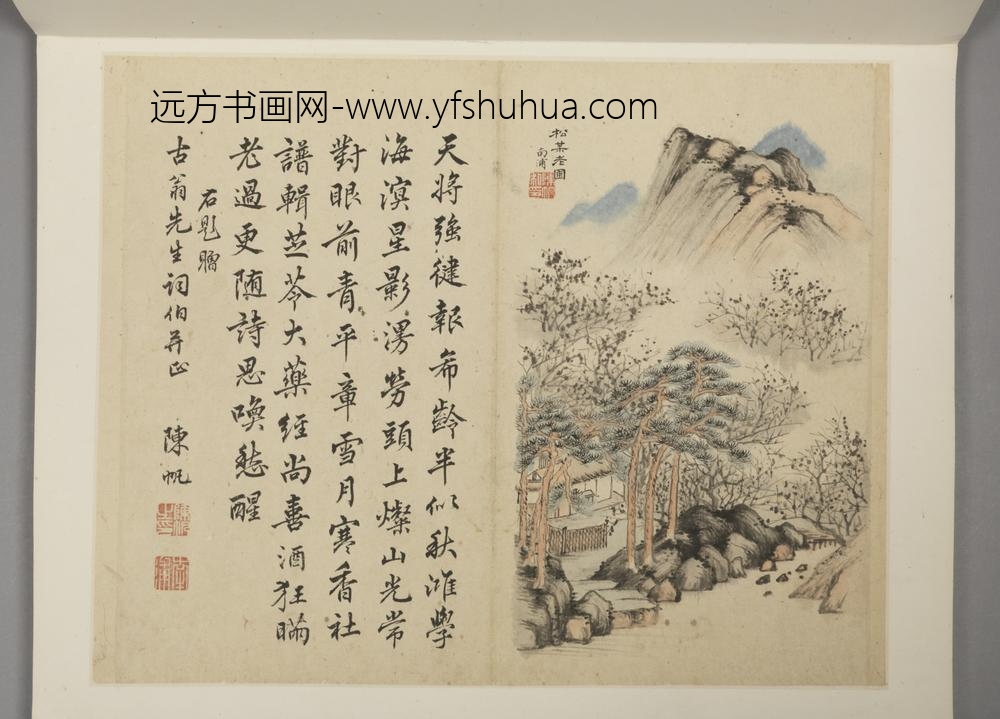 远方书画网-www.yfshuhua.com
松某老圃
南浦
天將強健報希齡半似秋淮學
海溟星影漫勞頭上燦山光常
對眼前青平章雪月寒香社
譜輯芝苓大藥經尚喜酒狂瞞
老過更随詩思喚愁醒
右題贈
古翁先生詞伯并正
陳帆